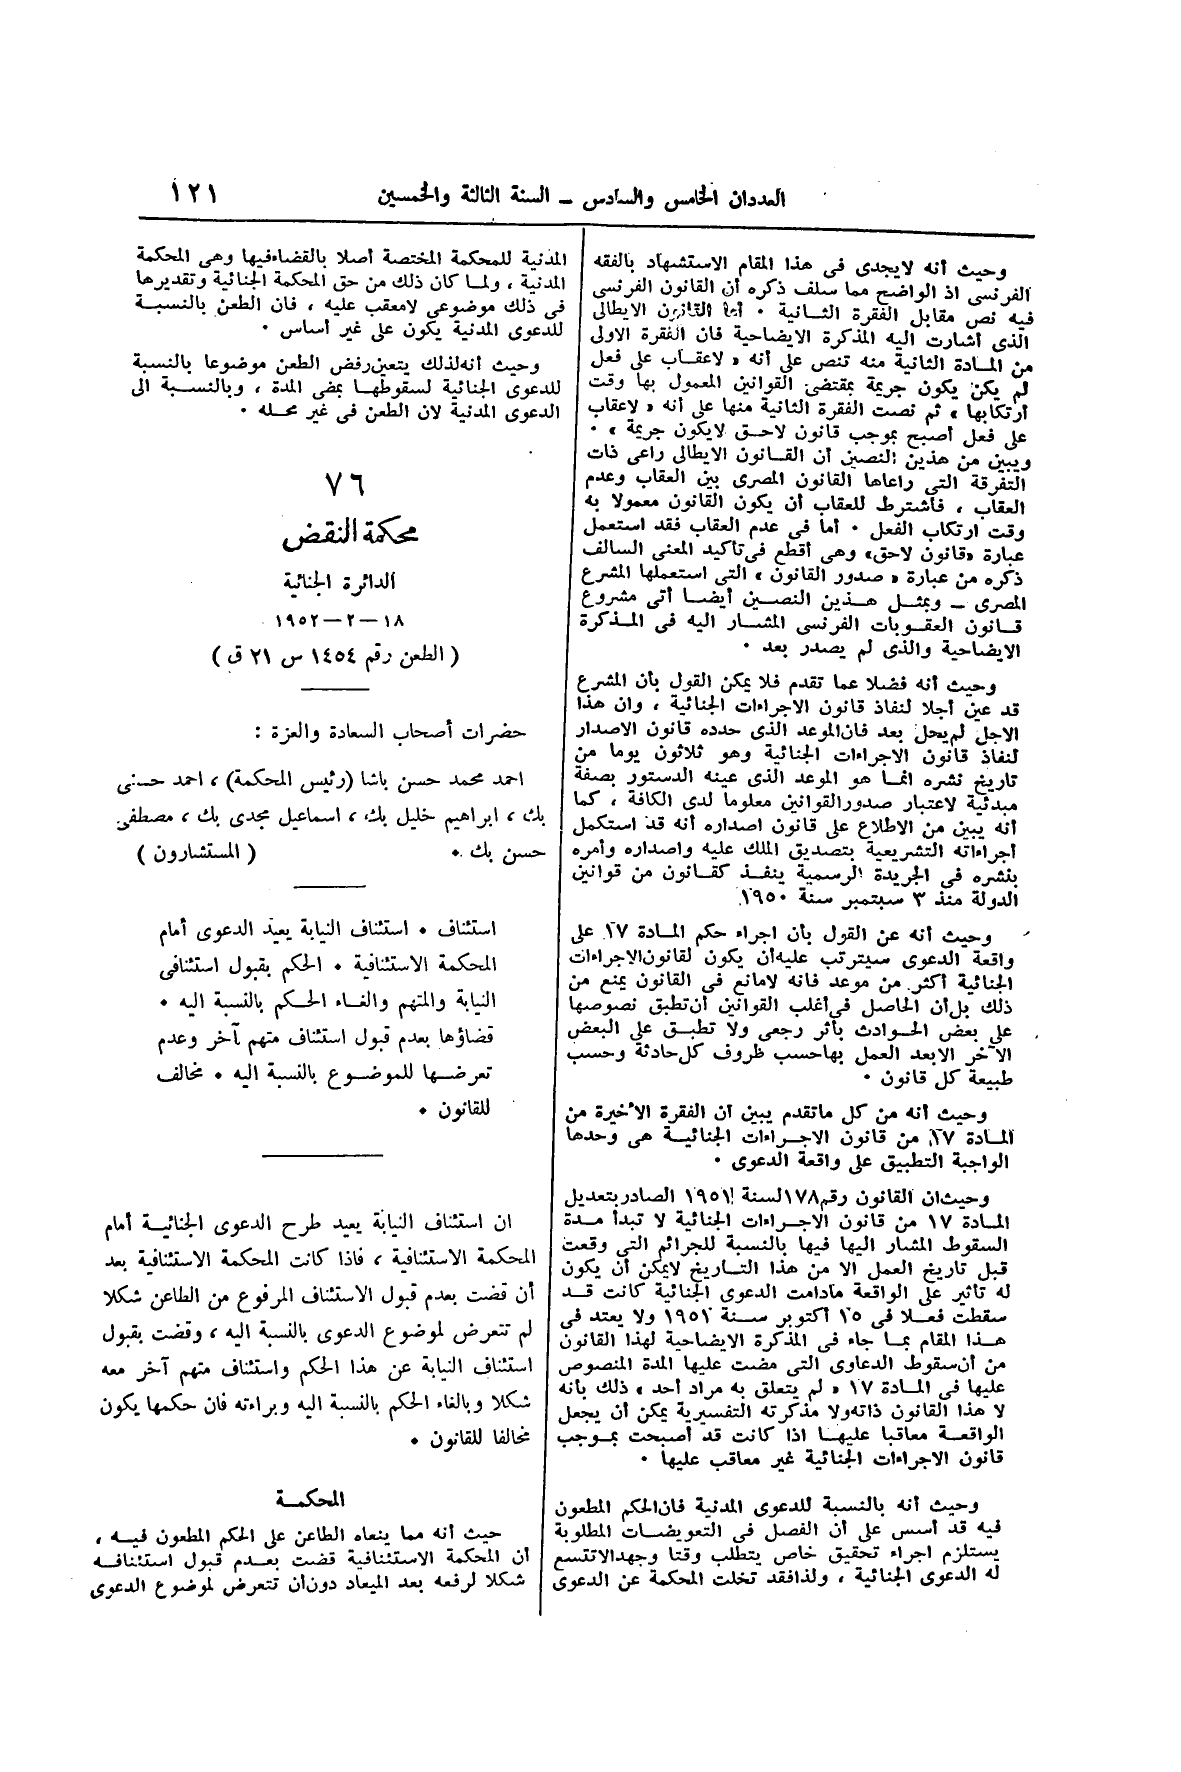 العددان الخامس والسادس – السنة الثالثة والخمسين
١٢١
وحيث أنه لايجدى فى هذا المقام الاستشهاد بالفقه
الفرنسى اذ الواضح مما سلف ذكره أن القانون الفرنسى
فيه نص مقابل الفقرة الثانية ٠ أما القانون الايطالى
الذى أشارت اليه المذكرة الايضاحية فان الفقرة الاولى
من المادة الثانية منه تنص على أنه « لاعقاب على فعل
لم يكن يكون جريمة بمقتضى القوانين المعمول بها وقت
ارتكابها » ثم نصت الفقرة الثانية منها على أنه « لاعقاب
على فعل أصبح بموجب قانون لاحق لايكون جريمة » ٠
ويبين من هذين النصين أن القانون الايطالى راعى ذات
التفرقة التى راعاها القانون المصرى بين العقاب وعدم
العقاب ، فاشترط للعقاب أن يكون القانون معمولا به
وقت ارتكاب الفعل ٠ أما فى عدم العقاب فقد استعمل
عبارة «قانون لاحق» وهى أقطع فى تأكيد المعنى السالف
ذكره من عبارة « صدور القانون » التى استعملها المشرع
المصرى – وبمثل هذين النصين أيضا أتى مشروع
قانون العقوبات الفرنسى المشار اليه فى المذكرة
الايضاحية والذى لم يصدر بعد ٠
وحيث أنه فضلا عما تقدم فلا يمكن القول بأن المشرع
قد عين أجلا لنفاذ قانون الاجراءات الجنائية ، وان هذا
الاجل لم يحل بعد فان الموعد الذى حدده قانون الاصدار
لنفاذ قانون الاجراءات الجنائية وهو ثلاثون يوما من
تاريخ نشره انما هو الموعد الذى عينه الدستور بصفة
مبدئية لاعتبار صدور القوانين معلوما لدى الكافة ، كما
أنه يبين من الاطلاع على قانون اصداره أنه قد استكمل
اجراءاته التشريعية بتصديق الملك عليه واصداره وأمره
بنشره فى الجريدة الرسمية ينفذ كقانون من قوانين
الدولة منذ ٣ سبتمبر سنة ١٩٥٠
وحيث أنه عن القول بأن اجراء حكم المادة ١٧ على
واقعة الدعوى سيترتب عليه أن يكون لقانون الاجراءات
الجنائية أكثر من موعد فانه لامانع فى القانون يمنع من
ذلك بل أن الحاصل فى أغلب القوانين أن تطبق نصوصها
على بعض الحوادث بأثر رجعى ولا تطبق على البعض
الآخر الابعد العمل بها حسب ظروف كل حادثة وحسب
طبيعة كل قانون ٠
وحيث أنه من كل ماتقدم يبين أن الفقرة الاخيرة من
المادة ١٧ من قانون الاجراءات الجنائية هى وحدها
الواجبة التطبيق على واقعة الدعوى ٠
وحيث ان القانون رقم ١٧٨ لسنة ١٩٥١ الصادر بتعديل
المادة ١٧ من قانون الاجراءات الجنائية لا تبدأ مدة
السقوط المشار اليها فيها بالنسبة للجرائم التى وقعت
قبل تاريخ العمل الا من هذا التاريخ لايمكن أن يكون
له تأثير على الواقعة مادامت الدعوى الجنائية كانت قد
سقطت فعلا فى ١٥ أكتوبر سنة ١٩٥١ ولا يعتد فى
هذا المقام بما جاء فى المذكرة الايضاحية لهذا القانون
من أن سقوط الدعاوى التى مضت عليها المدة المنصوص
عليها فى المادة ١٧ « لم يتعلق به مراد أحد » ذلك بأنه
لا هذا القانون ذاته ولا مذكرته التفسيرية يمكن أن يجعل
الواقعة معاقبا عليها اذا كانت قد أصبحت بموجب
قانون الاجراءات الجنائية غير معاقب عليها ٠
وحيث أنه بالنسبة للدعوى المدنية فان الحكم المطعون
فيه قد أسس على أن الفصل فى التعويضات المطلوبة
يستلزم اجراء تحقيق خاص يتطلب وقتا وجهدا لاتتسع
له الدعوى الجنائية ، ولذا فقد تخلت المحكمة عن الدعوى
المدنية للمحكمة المختصة أصلا بالقضاء فيها وهى المحكمة
المدنية ، ولما كان ذلك من حق المحكمة الجنائية وتقديرها
فى ذلك موضوعى لامعقب عليه ، فان الطعن بالنسبة
للدعوى المدنية يكون على غير أساس ٠
وحيث أنه لذلك يتعين رفض الطعن موضوعا بالنسبة
للدعوى الجنائية لسقوطها بمضى المدة ، وبالنسبة الى
الدعوى المدنية لان الطعن فى غير محله ٠
٧٦
محكمة النقض
الدائرة الجنائية
١٨ – ٢ – ١٩٥٢
( الطعن رقم ١٤٥٤ س ٢١ ق )
حضرات أصحاب السعادة والعزة :
احمد محمد حسن باشا (رئيس المحكمة) ، احمد حسنى
بك ، ابراهيم خليل بك ، اسماعيل مجدى بك ، مصطفى
حسن بك ٠ ( المستشارون )
استئناف ٠ استئناف النيابة يعيد الدعوى أمام
المحكمة الاستئنافية ٠ الحكم بقبول استئنافى
النيابة والمتهم والغاء الحكم بالنسبة اليه ٠
قضاؤها بعدم قبول استئناف متهم آخر وعدم
تعرضها للموضوع بالنسبة اليه ٠ مخالف
للقانون ٠
ان استئناف النيابة يعيد طرح الدعوى الجنائية أمام
المحكمة الاستئنافية ، فاذا كانت المحكمة الاستئنافية بعد
أن قضت بعدم قبول الاستئناف المرفوع من الطاعن شكلا
لم تتعرض لموضوع الدعوى بالنسبة اليه ، وقضت بقبول
استئناف النيابة عن هذا الحكم واستئناف متهم آخر معه
شكلا وبالغاء الحكم بالنسبة اليه وبراءته فان حكمها يكون
مخالفا للقانون ٠
المحكمة
حيث أنه مما ينعاه الطاعن على الحكم المطعون فيه ،
أن المحكمة الاستئنافية قضت بعدم قبول استئنافه
شكلا لرفعه بعد الميعاد دون أن تتعرض لموضوع الدعوى